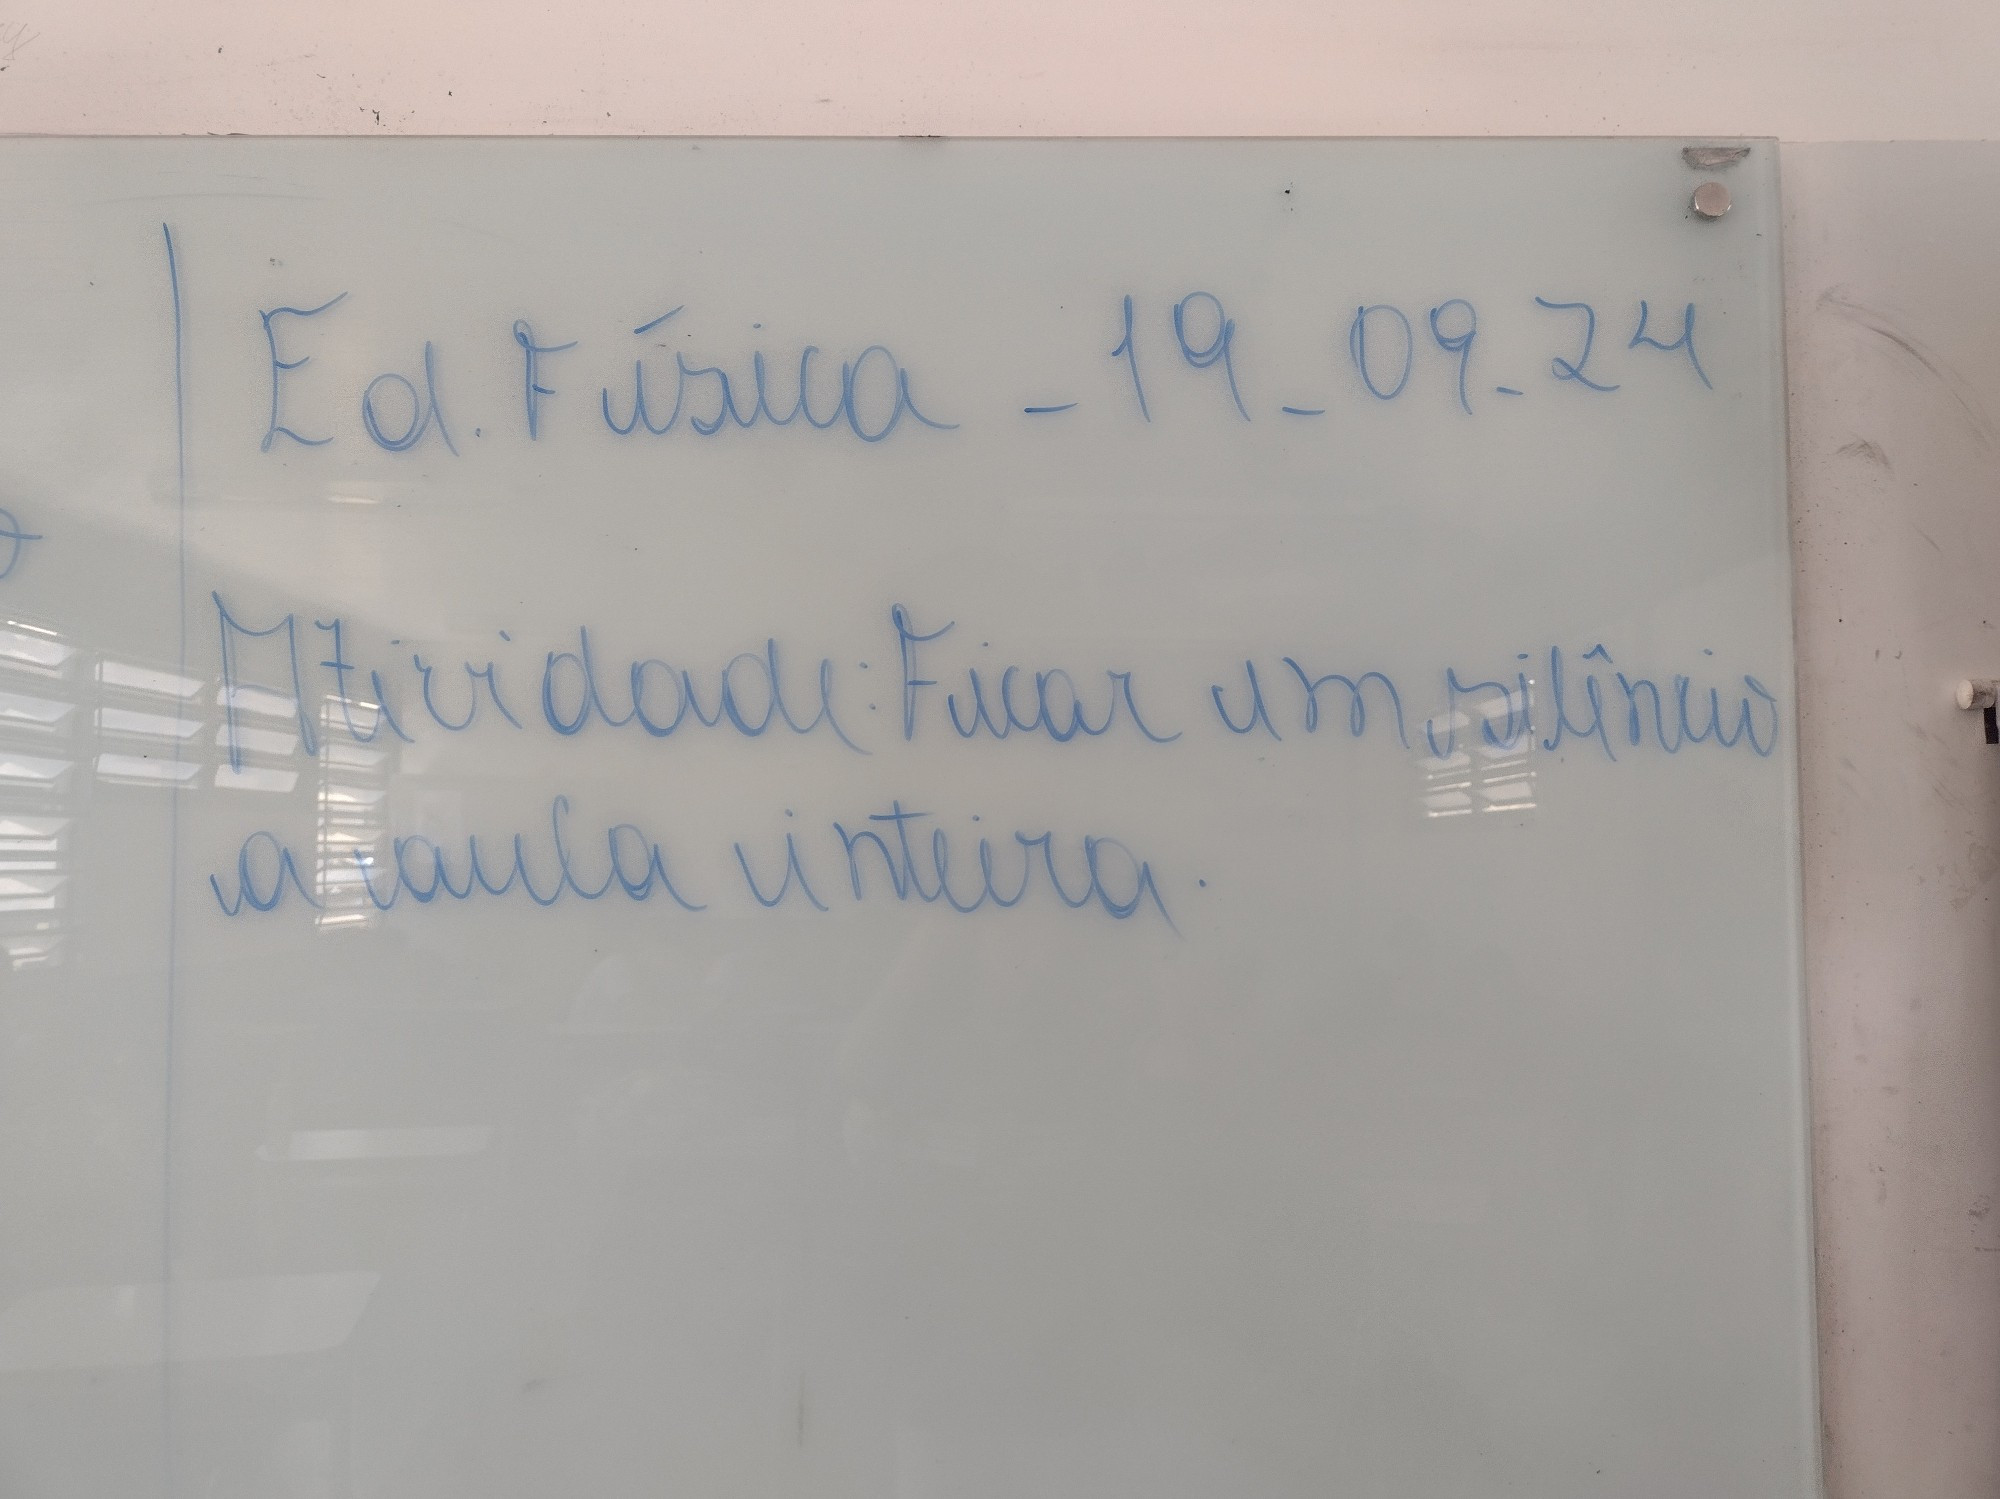 Ed. Física - 19-09-24
Atividade: Ficar em silêncio
a aula inteira.